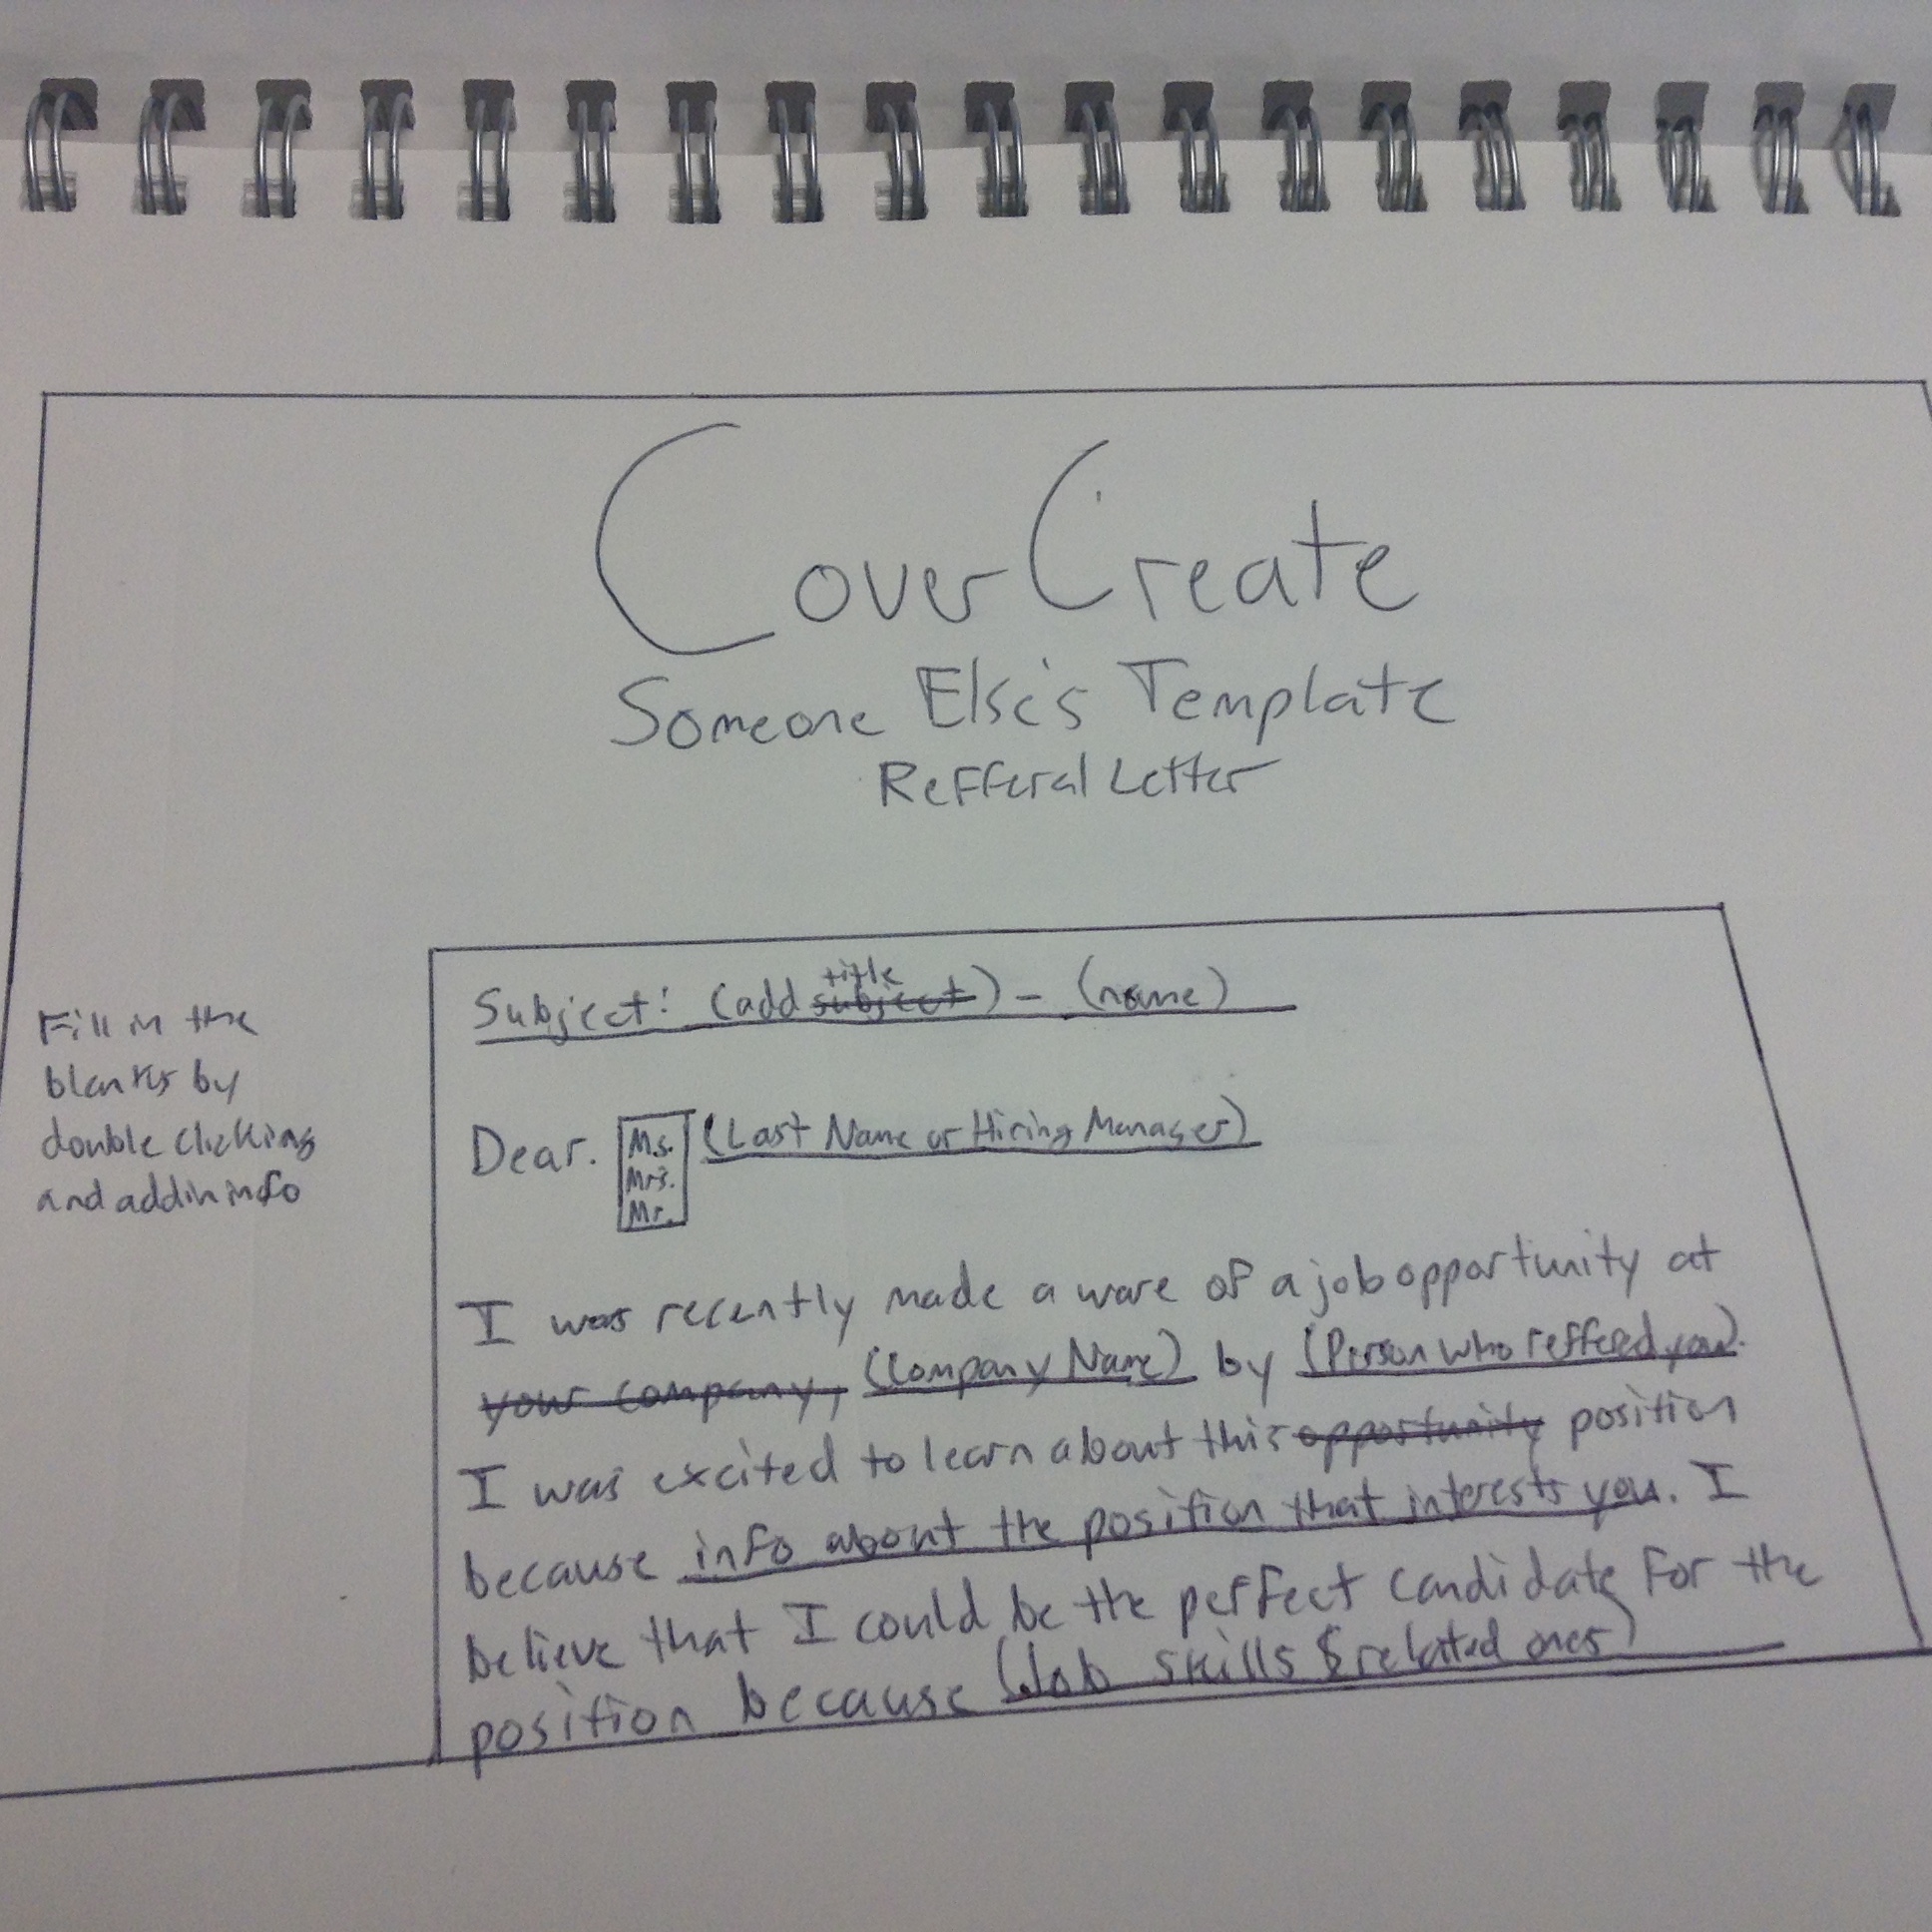 Cover Create
Someone Else's Template
Refferal Letter
Fill in the
blanks by
double clicking
and addin info
Subject: (add subject title) - (name)
Dear. Ms. Mrs. Mr. (Last Name or Hiring Manager)
I was recently made a ware of a job opportunity at
your company, (Company Name) by (Person who reffered you).
I was excited to learn about this opportunity position
because info about the position that interests you. I
believe that I could be the perfect candidate for the
position because (Job skills & related ones)